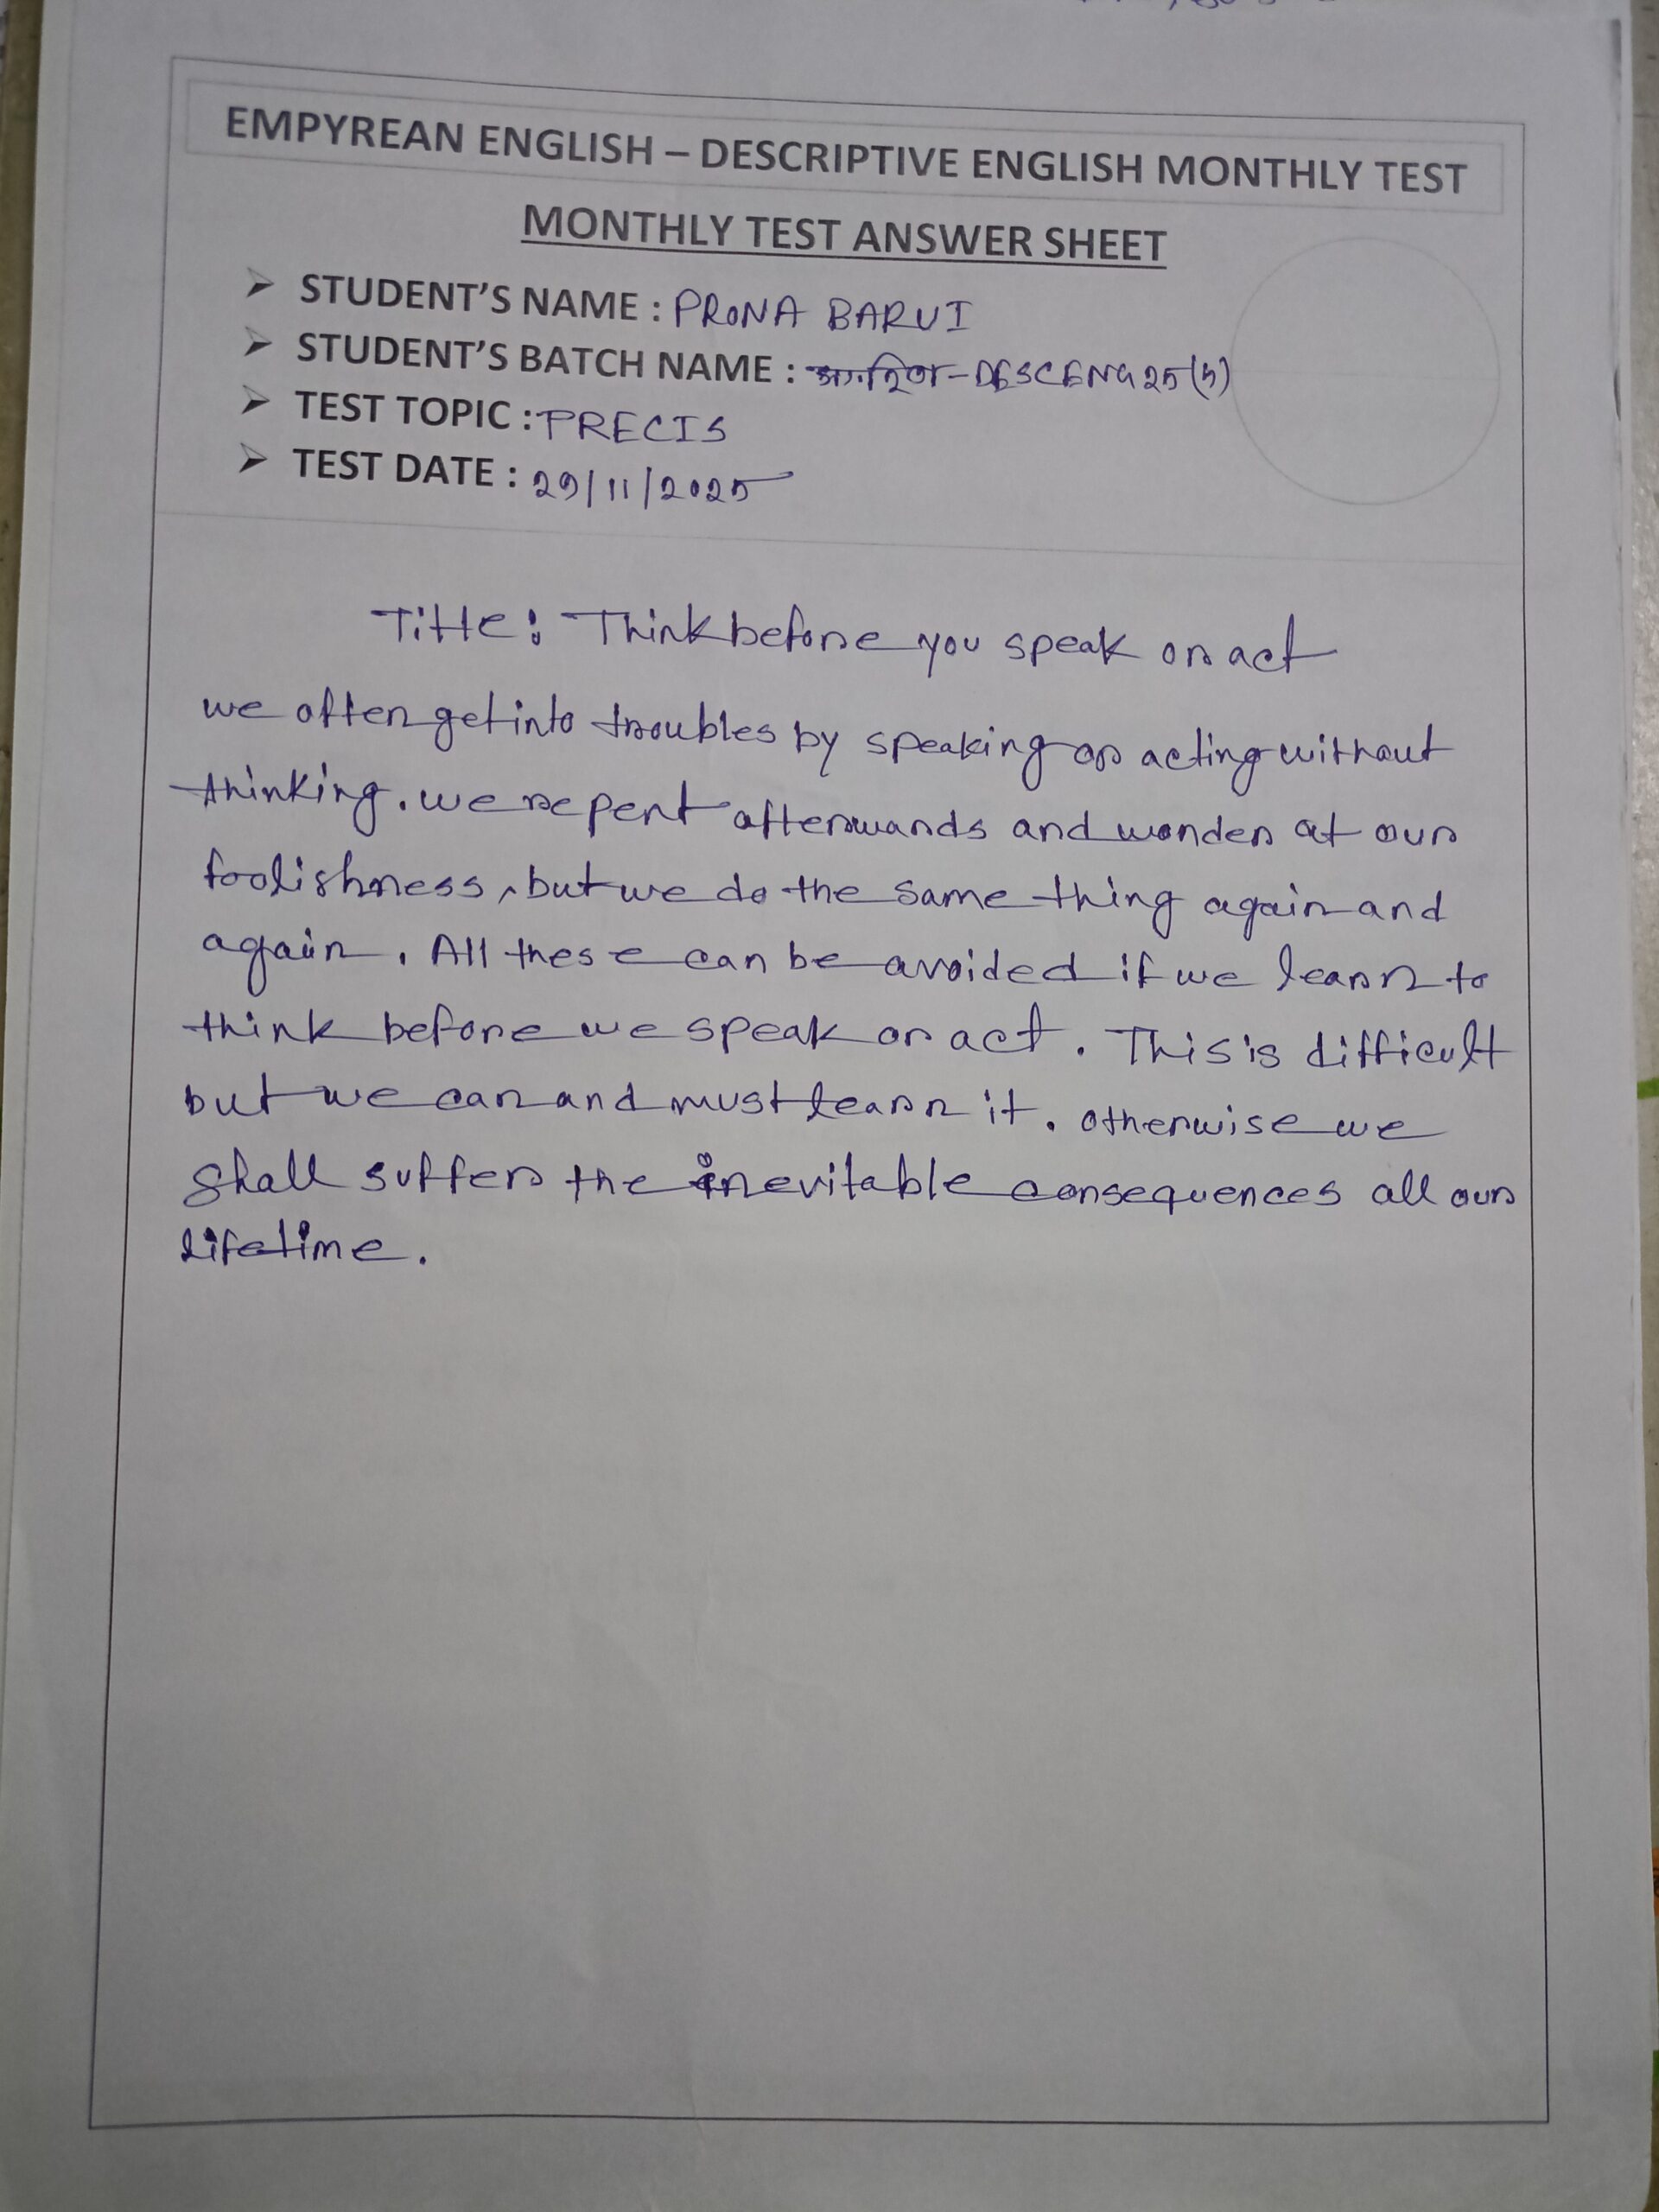 EMPYREAN ENGLISH – DESCRIPTIVE ENGLISH MONTHLY TEST
MONTHLY TEST ANSWER SHEET
➢ STUDENT'S NAME : PRONA BARUI
➢ STUDENT'S BATCH NAME : -DESCENG25(5)
➢ TEST TOPIC : PRECIS
➢ TEST DATE : 29/11/2025
Title: Think before you speak or act
we often get into troubles by speaking or acting without
thinking. we repent afterwards and wonder at our
foolishness, but we do the same thing again and
again. All these can be avoided if we learn to
think before we speak or act. This is difficult
but we can and must learn it. otherwise we
shall suffer the inevitable consequences all our
lifetime.